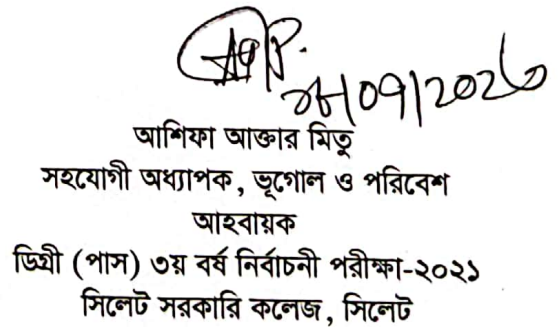 আশিফা আক্তার মিতু
সহযোগী অধ্যাপক, ভূগোল ও পরিবেশ
আহবায়ক
ডিগ্রী (পাস) ৩য় বর্ষ নির্বাচনী পরীক্ষা-২০২১
সিলেট সরকারি কলেজ, সিলেট